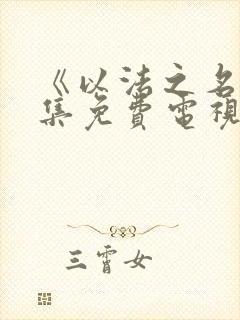 《以法之名
集免費電視
三霄女